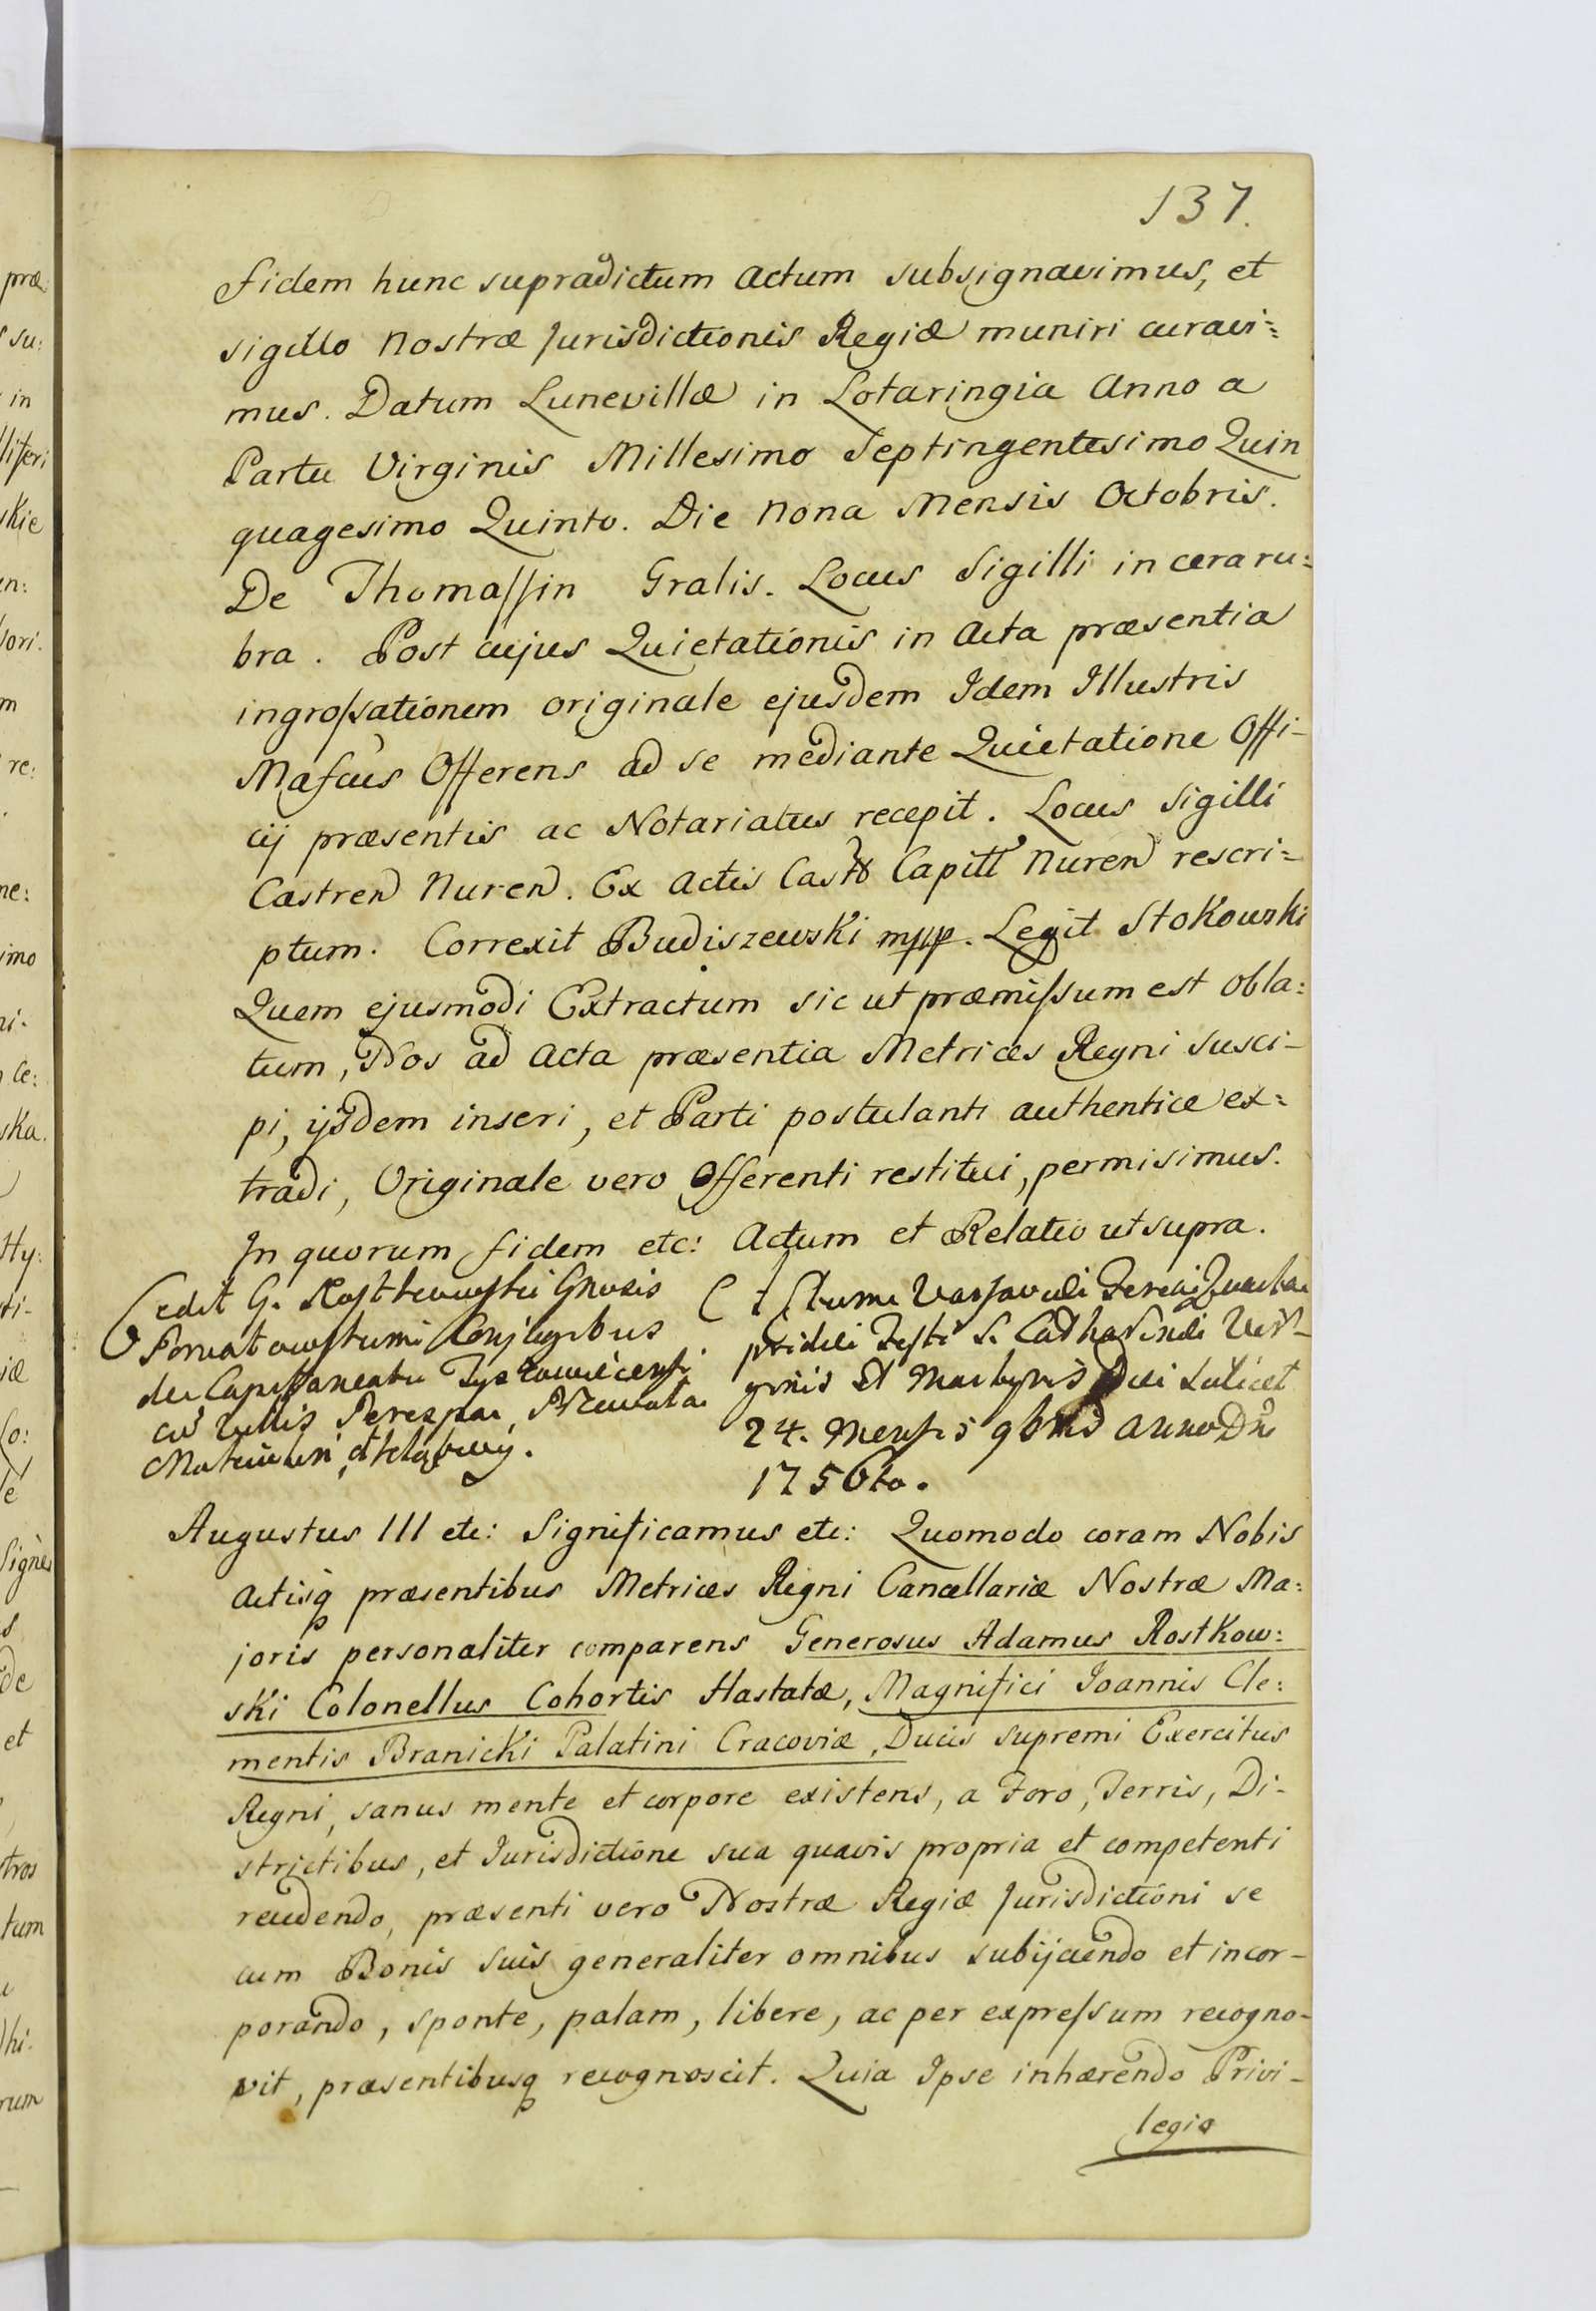 137.
fidem hunc supradictum Actum subsignavimus, et
sigillo Nostræ Jurisdictionis Regiæ muniri curavi=
mus. Datum Lunevillæ in Lotaringia Anno a
Partu Virginis Millesimo Septingentesimo Quin
quagesimo Quinto. Die Nona Mensis Octobris.
De Thomassin Gralis. Locus Sigilli in cera ru=
bra. Post cujus Quietationis in Acta præsentia
ingrossationem originale ejusdem Idem Illustris
Mascus Offerens ad se mediante Quietatione Offi-
cij præsentis ac Notariatus recepit. Locus Sigilli
Castren Nuren. Ex Actis Castr Capitl Nuren rescri=
ptum. Correxit Budiszewski mpp. Legit Stokowski
Quem ejusmodi Extractum sic ut præmissum est obla=
tum, Nos ad Acta præsentia Metrices Regni susci-
pi, ijsdem inseri, et Parti postulanti authentice ex=
tradi, Originale vero Offerenti restitui, permisimus.
In quorum fidem etc: Actum et Relatio ut supra.
Cedit G. Rostkowski Gnosis
Poniatowskiemi Conjugibus
de Capitaneatu
cu Villis
Actum Varsaviæ Feria Quarta
pridie Festi S. Catharinæ Vir-
ginis Et Martyris Die scilicet
24. Mensis 9bris Anno Dni
1756to.
Augustus III etc: Significamus etc: Quomodo coram Nobis
Actisq præsentibus Metrices Regni Cancellariæ Nostræ Ma=
joris personaliter comparens Generosus Adamus Rostkow=
ski Colonellus Cohortis Hastatæ, Magnifici Joannis Cle=
mentis Branicki Palatini Cracoviæ, Ducis supremi Exercitus
Regni, sanus mente et corpore existens, a Foro, Terris, Di-
strictibus, et Jurisdictione sua quavis propria et competenti
recedendo, præsenti vero Nostræ Regiæ Jurisdictioni se
cum Bonis suis generaliter omnibus subijciendo et incor-
porando, sponte, palam, libere, ac per expressum recogno-
vit, præsentibusq recognoscit. Quia Ipse inhærendo Privi-
legio